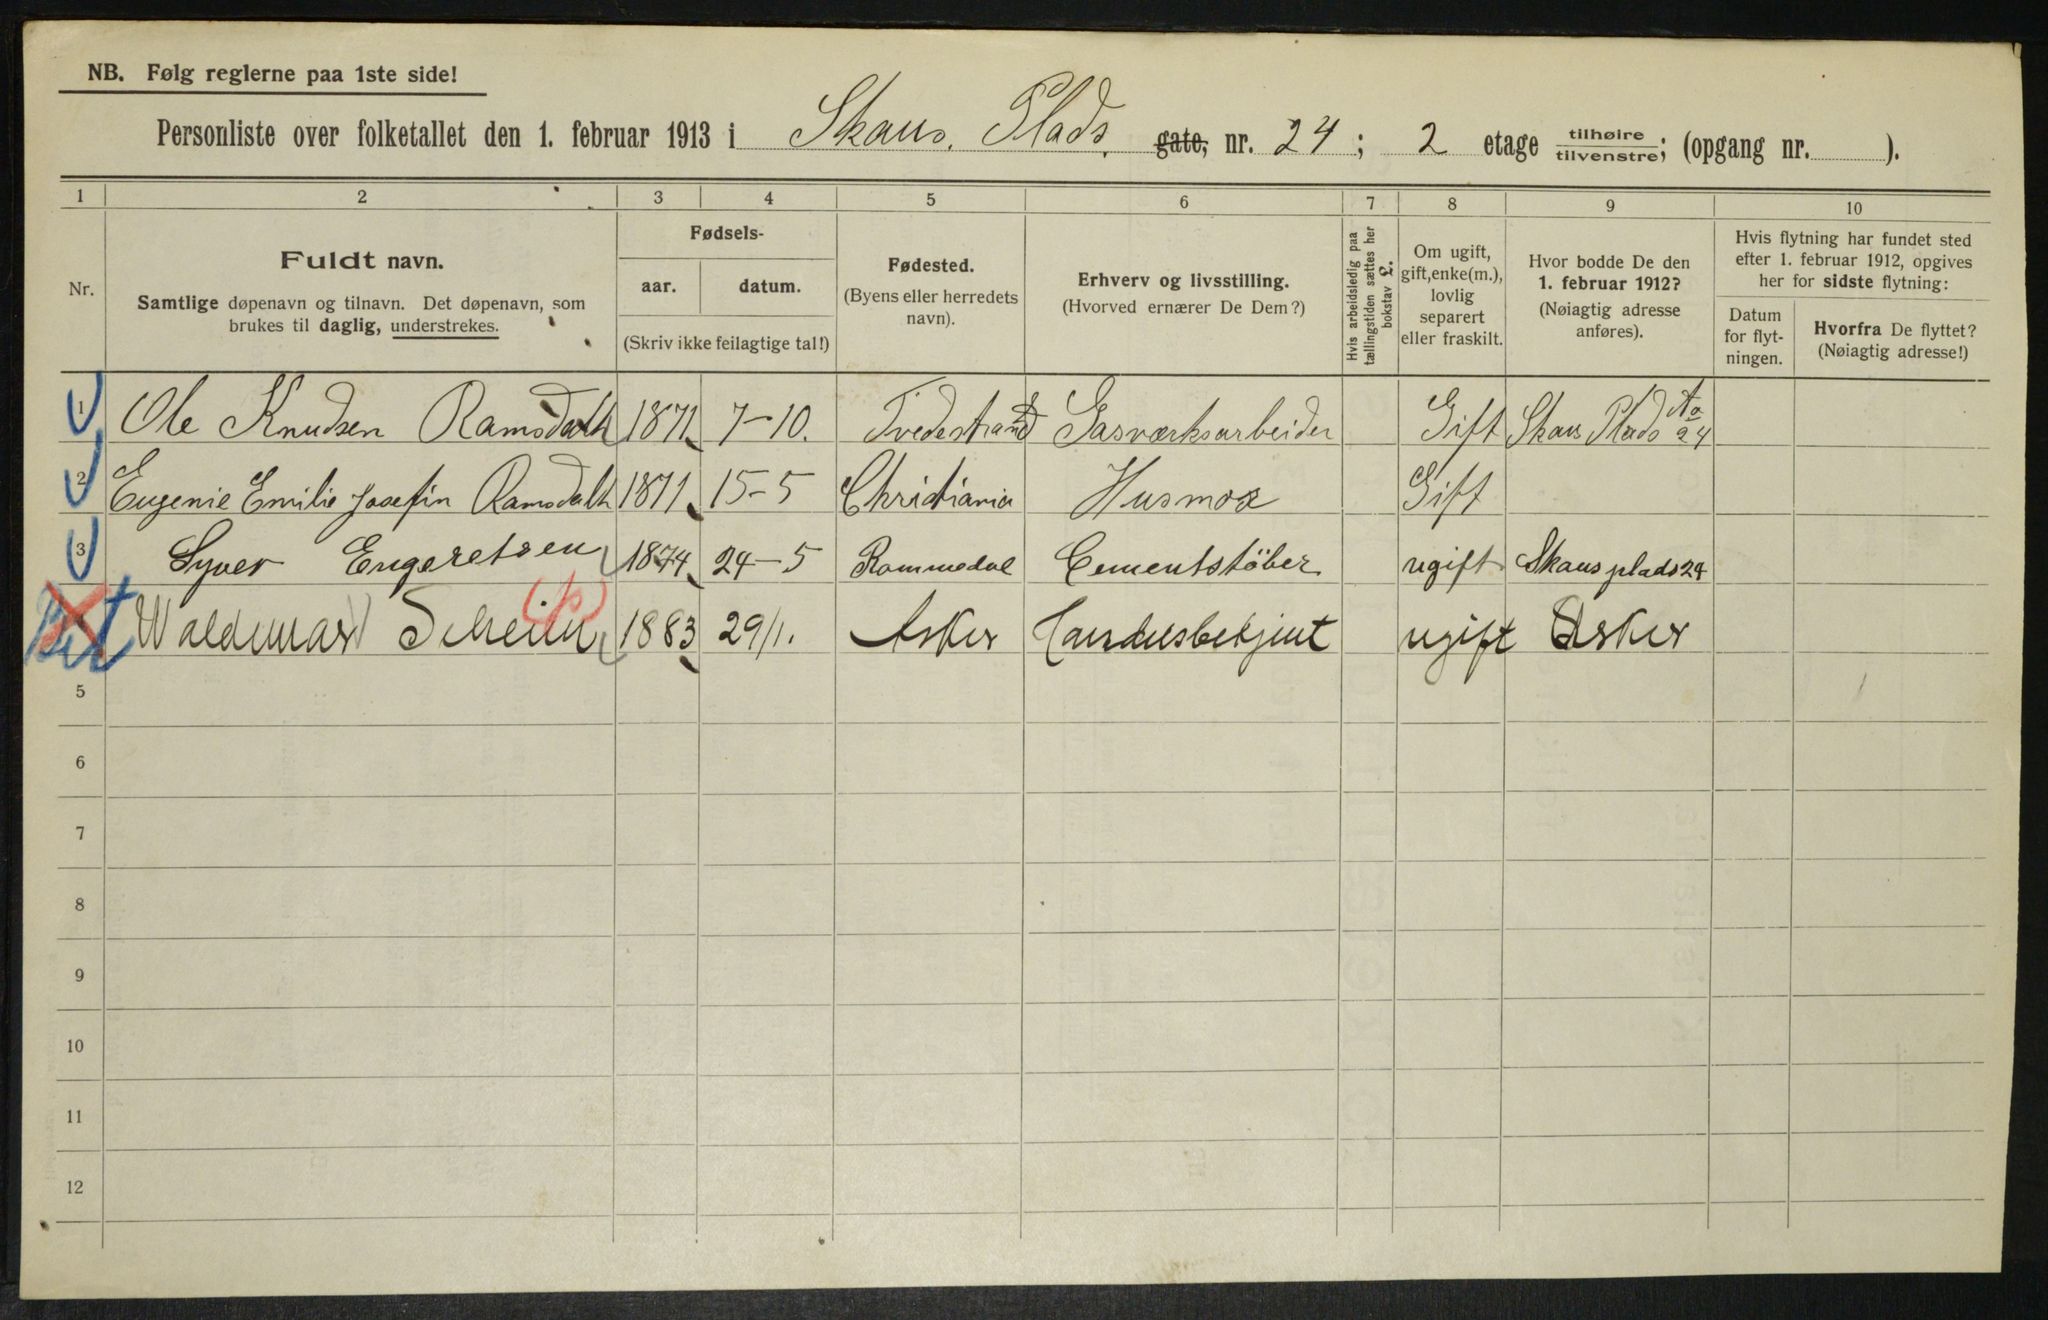 NB. Følg reglerne paa 1ste side!
Personliste over folketallet den 1. februar 1913 i Skaus. Plads. gate, nr. 24; 2 etage tilhøire tilvenstre; (opgang nr. ).
1 2 3 4 5 6 7 8 9 10
Nr.
Fuldt navn.
Samtlige døpenavn og tilnavn. Det døpenavn, som
brukes til daglig, understrekes.
Fødsels-
aar. datum.
(Skriv ikke feilagtige tal!)
Fødested.
(Byens eller herredets
navn).
Erhverv og livsstilling.
(Hvorved ernærer De Dem?)
Hvis arbeidsledig paa
tællingstiden sættes her
bokstav £.
Om ugift,
gift, enke(m.),
lovlig
separert
eller fraskilt.
Hvor bodde De den
1. februar 1912?
(Nøiagtig adresse
anføres).
Hvis flytning har fundet sted
efter 1. februar 1912, opgives
her for sidste flytning:
Datum
for flyt-
ningen.
Hvorfra De flyttet?
(Nøiagtig adresse!)
1 Ole Knudsen Ramsdalh 1871 7-10. Tvedestrand Gasværksarbeider Gift Skaus Plads No 24
2 Eugenie Emilie Josefin Ramsdalh 1871 15-5 Christiania Husmor Gift
3 Syver Engeretsen 1874 24-5 Rommedal Cementstöber ugift Skausplads 24
Waldemar 1883 29/1. Asker Handelsbetjent ugift Asker
5
6
7
8
9
10
11
12